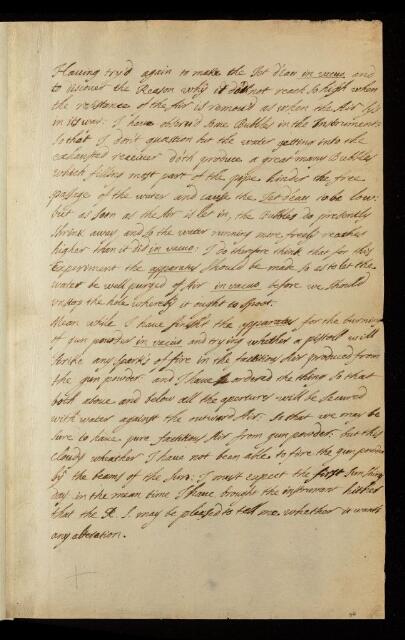 Having try'd again to make the Jet d'eau in vacuo and
to discover the Reason why it doth not reach so high when
the resistance of the Air is remov'd as when the Air lies
in its way: I have observ'd some Bubbles in the Instrument:
so that I don't question but the water getting into the
exhausted receiver doth produce a great many Bubbles
which filling most part of the pipe hinder the free
passage of the water and cause the Jet d'eau to be low:
but as soon as the Air is let in, the Bubbles do presently
shrink away and so the water running more freely reaches
higher than it did in vacuo: I do therefore think that for this
Experiment the apparatus should be made so as to let the
water be well purged of Air in vacuo before we should
unstop the hole whereby it ought to spout.
Mean while I have the apparatus for the burning
of gun powder in vacuo and trying whether a pistoll will
strike any sparks of fire in the factitious Air produced from
the gun powder and I have ordered the thing so that
both above and below all the apertures will be secured
with water against the outward Air. so that we may be
sure to have pure factitious Air from gun powder. but this
cloudy wheather I have not been able to fire the gun powder
by the beams of the Sun: I must expect the first Sun shiny
day, in the mean time I have brought the instrument hither
that the R. S. may be pleased to tell me whether it wants
any alteration.